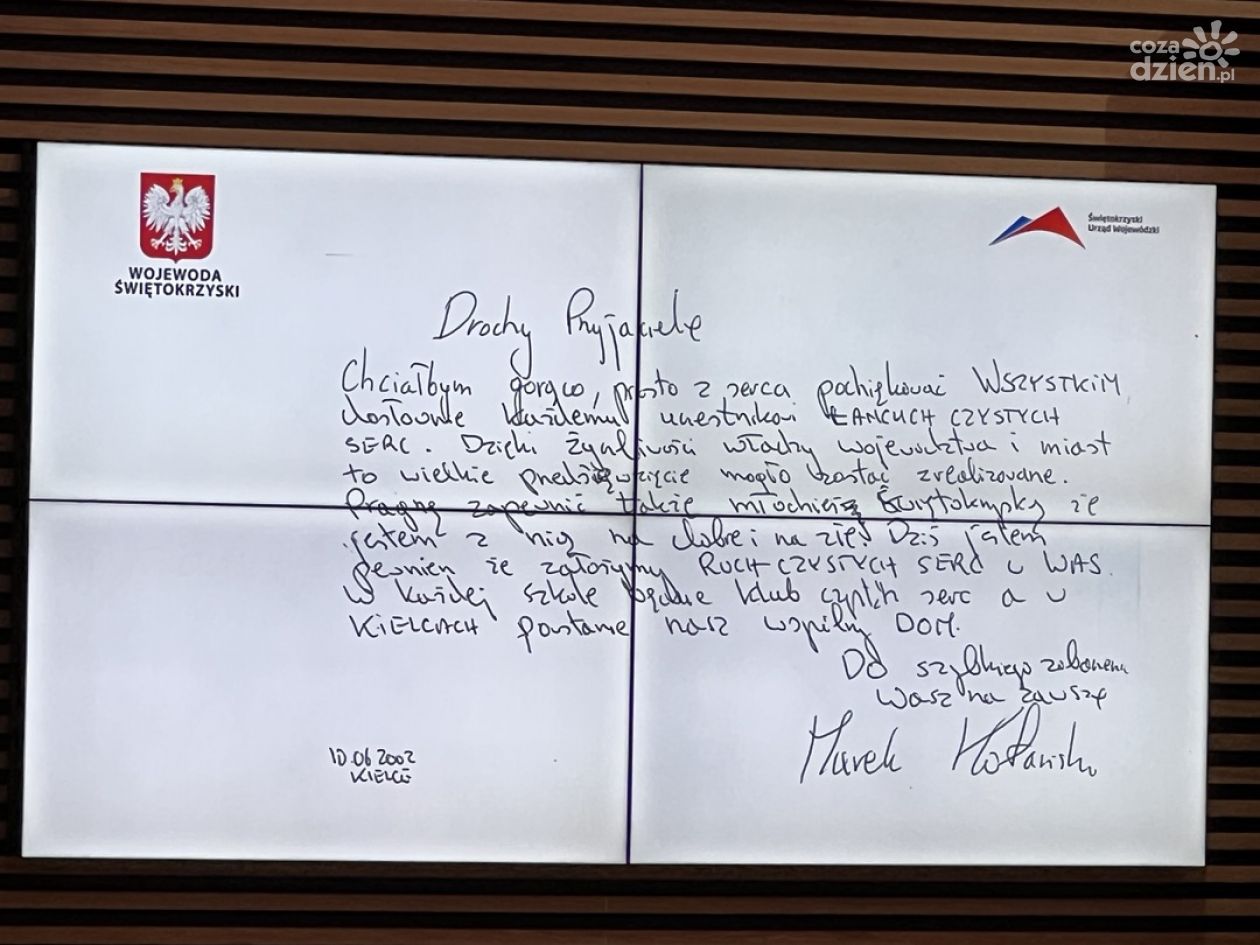 coza
dzien.pl
WOJEWODA
ŚWIĘTOKRZYSKI
Świętokrzyski
Urząd Wojewódzki
Drodzy Przyjaciele
Chciałbym gorąco, prosto z serca podziękować WSZYSTKIM
dosłownie każdemu uczestnikowi ŁAŃCUCH CZYSTYCH
SERC. Dzięki życzliwości władzy województwa i miast
to wielkie przedsięwzięcie mogło zostać zrealizowane.
Pragnę zapewnić także młodzież Świętokrzyską że
jestem z nią na dobre i na złe! Dziś jestem
pewien że założymy RUCH CZYSTYCH SERC u WAS.
W każdej szkole będzie klub czystych serc a w
KIELCACH powstanie nasz wspólny DOM.
Do szybkiego zobaczenia
Wasz na zawsze
Marek Kotański
10.06 2002
KIELCE